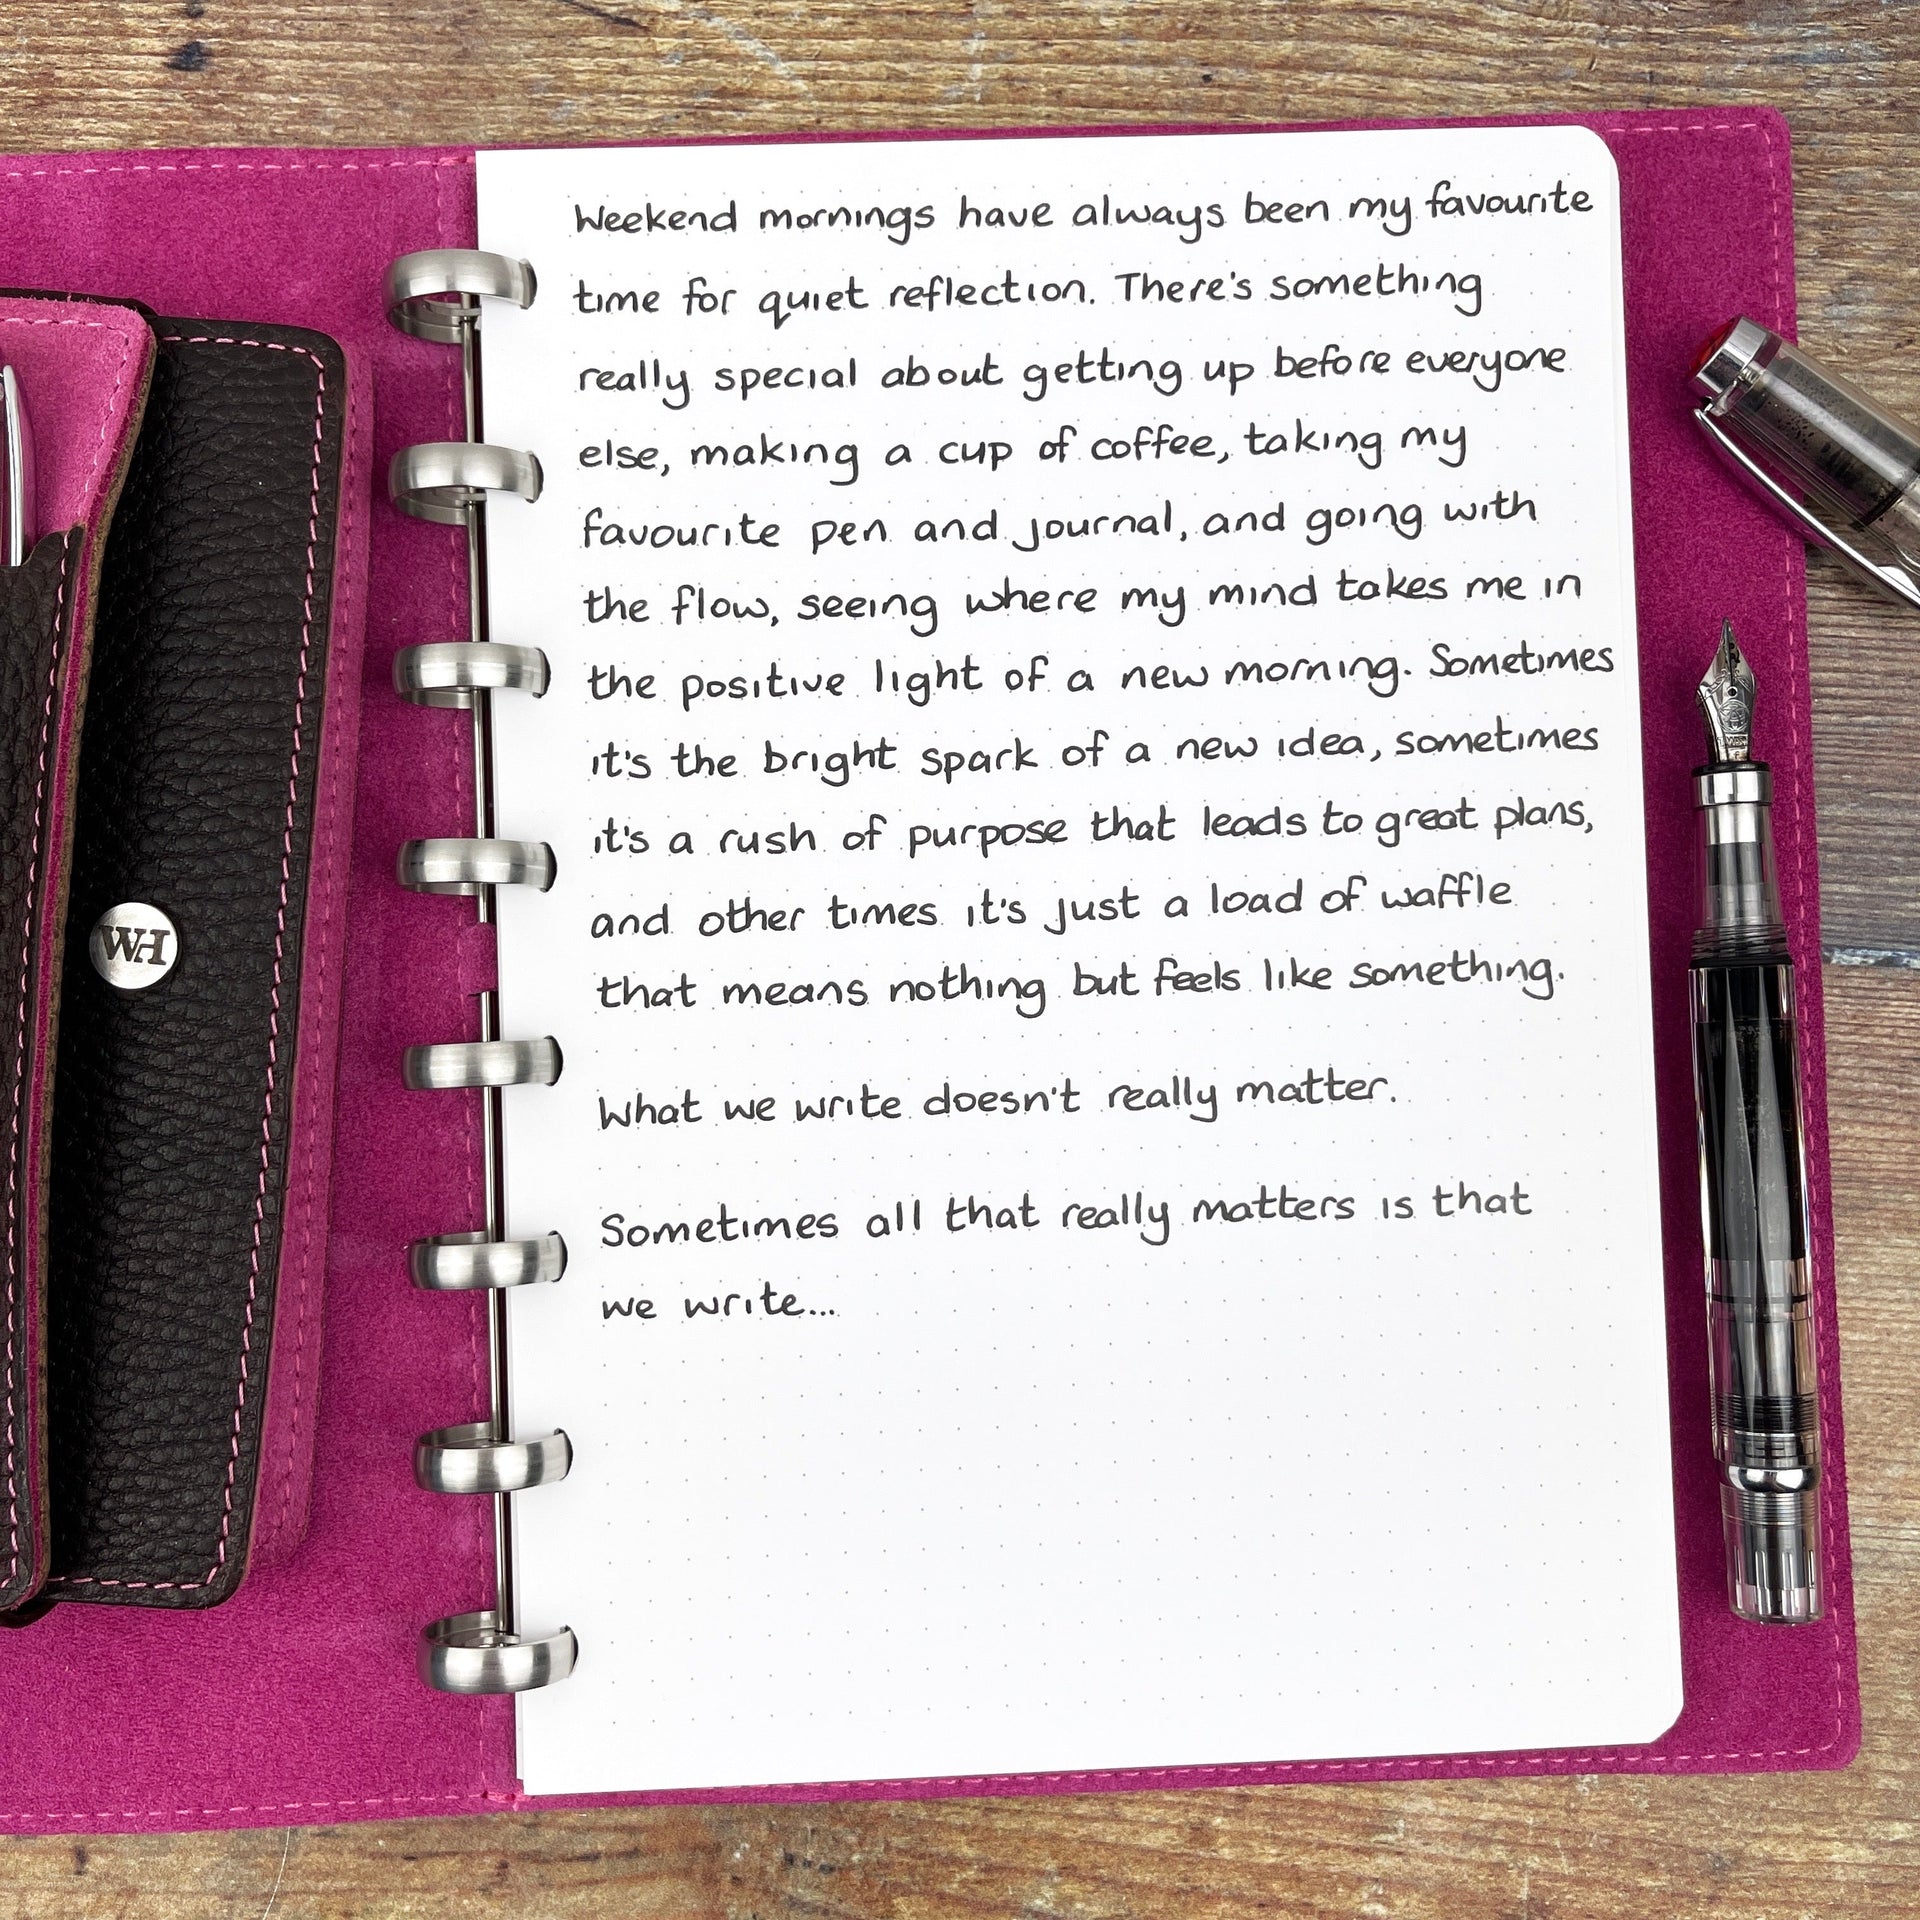 Weekend mornings have always been my favourite
time for quiet reflection. There's something
really special about getting up before everyone
else, making a cup of coffee, taking my
favourite pen and journal, and going with
the flow, seeing where my mind takes me in
the positive light of a new morning. Sometimes
it's the bright spark of a new idea, sometimes
it's a rush of purpose that leads to great plans,
and other times it's just a load of waffle
that means nothing but feels like something.
What we write doesn't really matter.
Sometimes all that really matters is that
we write...
WH